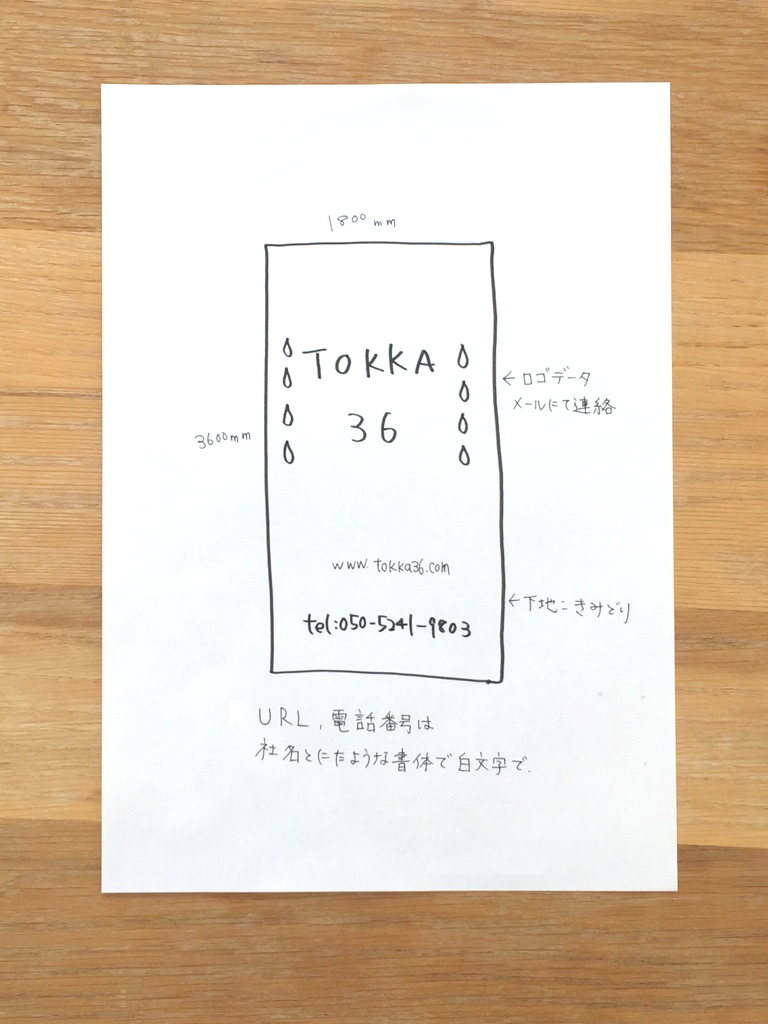 1800mm
TOKKA
36
←ロゴデータ
メールにて連絡
3600mm
www.tokka36.com
←下地:きみどり
tel:050-5241-9803
URL,電話番号は
社名とにたような書体で白文字で.